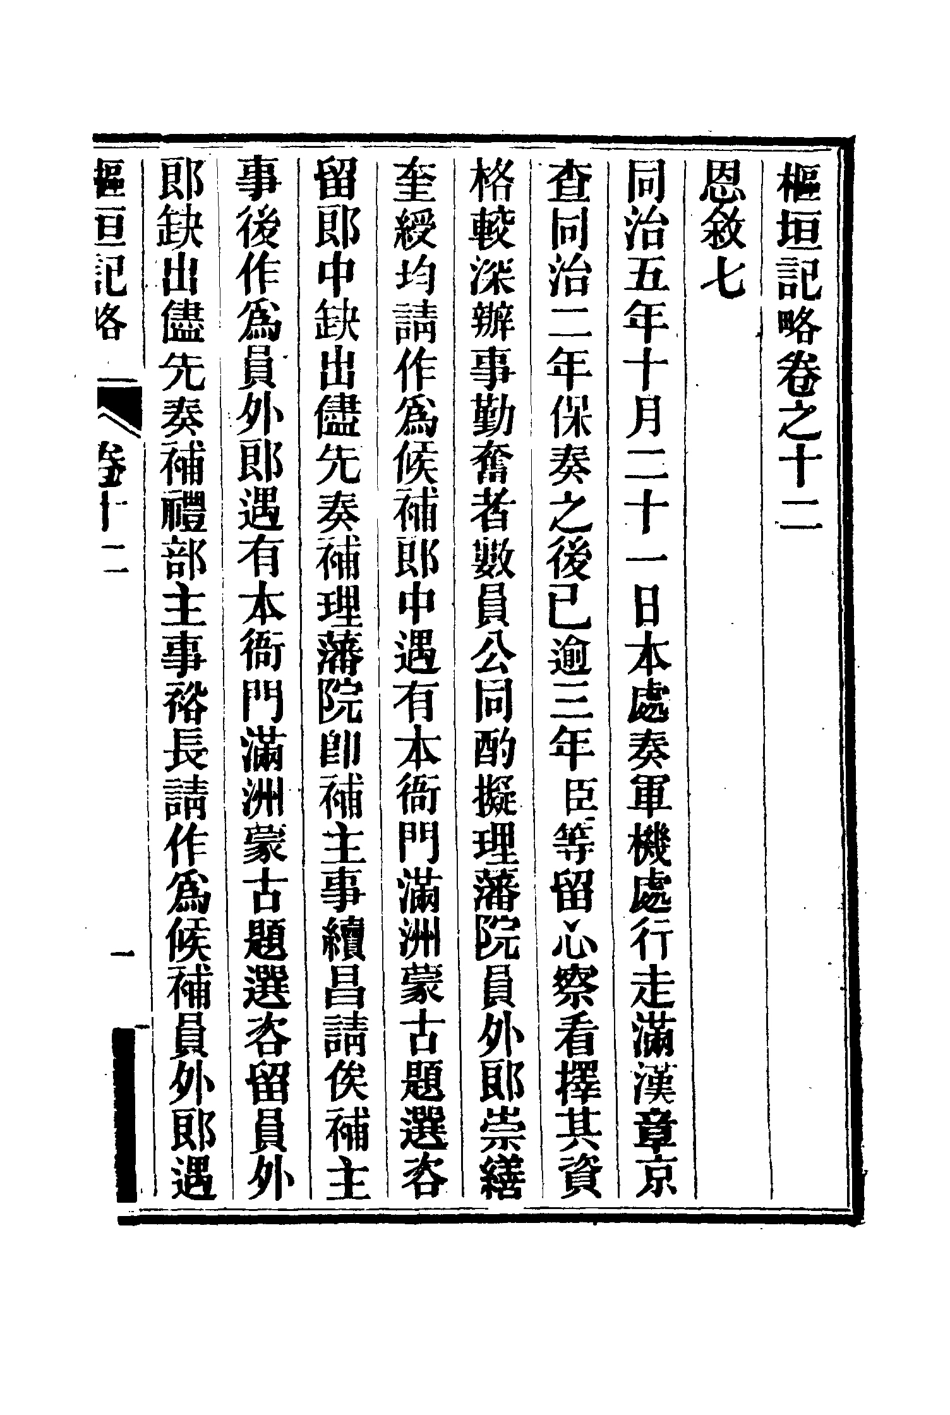 樞垣記略卷之十二
恩敘七
同治五年十月二十一日本處奏軍機處行走滿漢章京
查同治二年保奏之後已逾三年臣等留心察看擇其資
格較深辦事勤奮者數員公同酌擬理藩院員外郎崇繕
奎綬均請作爲候補郎中遇有本衙門滿洲蒙古題選咨
留郎中缺出儘先奏補理藩院卽補主事續昌請俟補主
事後作爲員外郎遇有本衙門滿洲蒙古題選咨留員外
郎缺出儘先奏補禮部主事裕長請作爲候補員外郎遇
樞垣記略 卷十二 一